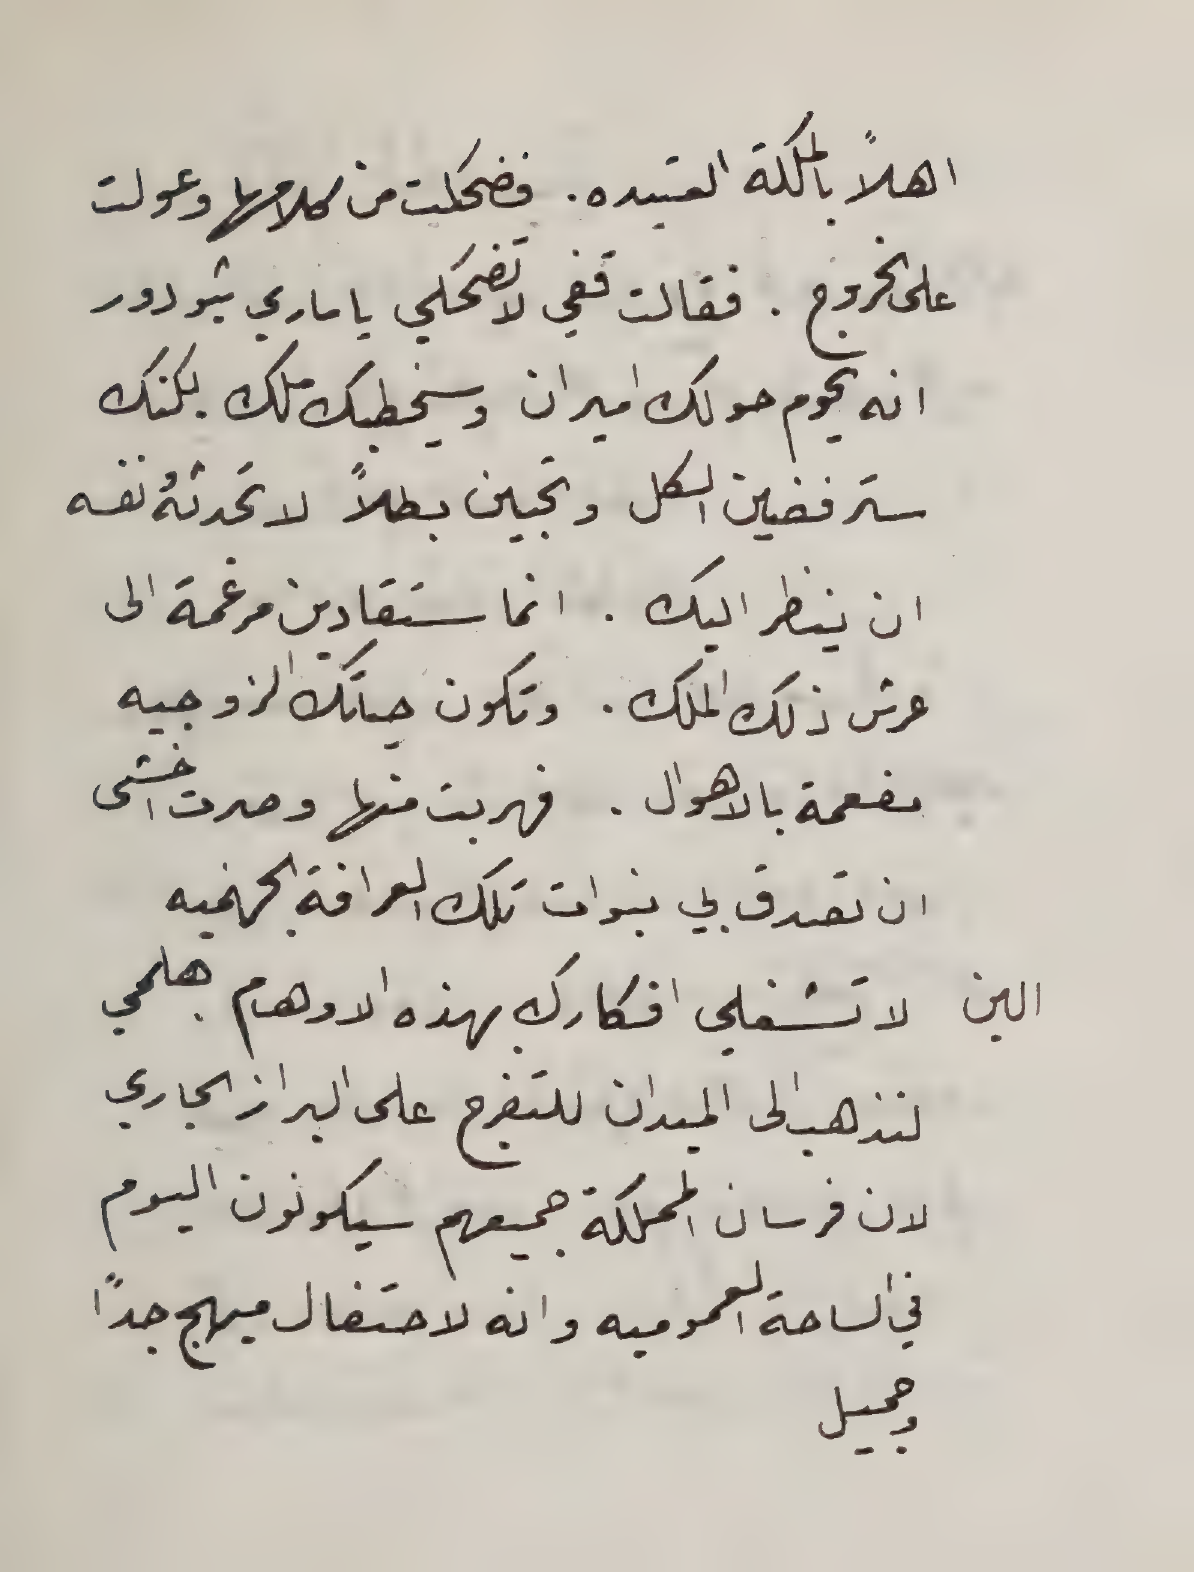 اهلاً بالملكة العتيده. فضحكت من كلامها وعولت
على الخروج . فقالت قفي لا تضحكي يا ماري تيودور
انه يحوم حولك اميران وسيخطبك ملك لكنك
سترفضين الكل وتحبين بطلاً لا تحدثهُ نفسه
ان ينظر اليك . انما ستقادين مرغمة الى
عرش ذلك الملك . وتكون حياتك الزوجيه
مفعمة بالاهوال . فهربت منها وصرت اخشى
ان تصدق بي نبوات تلك العرافة الجهنميه
الين لا تشغلي افكارك بهذه الاوهام هلمي
لنذهب الى الميدان للتفرج على البراز الجاري
لان فرسان المملكة جميعهم سيكونون اليوم
في الساحة العموميه وانه لاحتفال مبهج جداً
وجميل